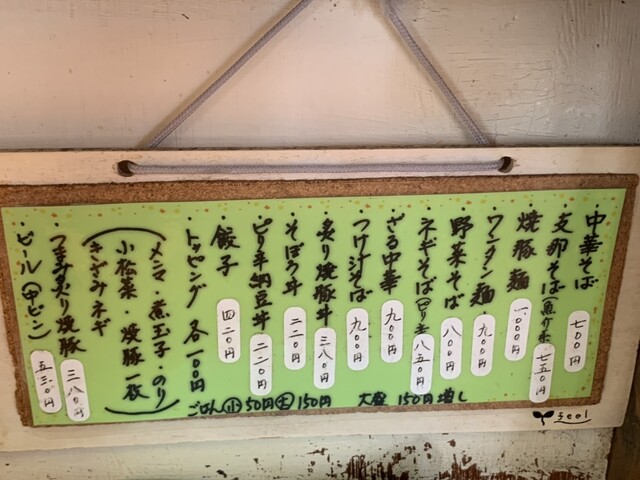 中華そば 七〇〇円
支那そば(魚介系 七五〇円
焼豚麺 一、〇〇〇円
ワンタン麺 九〇〇円
野菜そば 八〇〇円
ネギそば(ピリ辛 八五〇円
ざる中華 九〇〇円
つけ汁そば 九〇〇円
炙り焼豚丼 三八〇円
そぼろ丼 二二〇円
ピリ辛納豆丼 二二〇円
餃子 四二〇円
トッピング 各一〇〇円
(メンマ・煮玉子・のり
小松菜・焼豚一枚
きざみネギ)
つまみ炙り焼豚 三八〇円
ビール(中ビン) 五三〇円
ごはん小50円大150円 大盛 150円増し